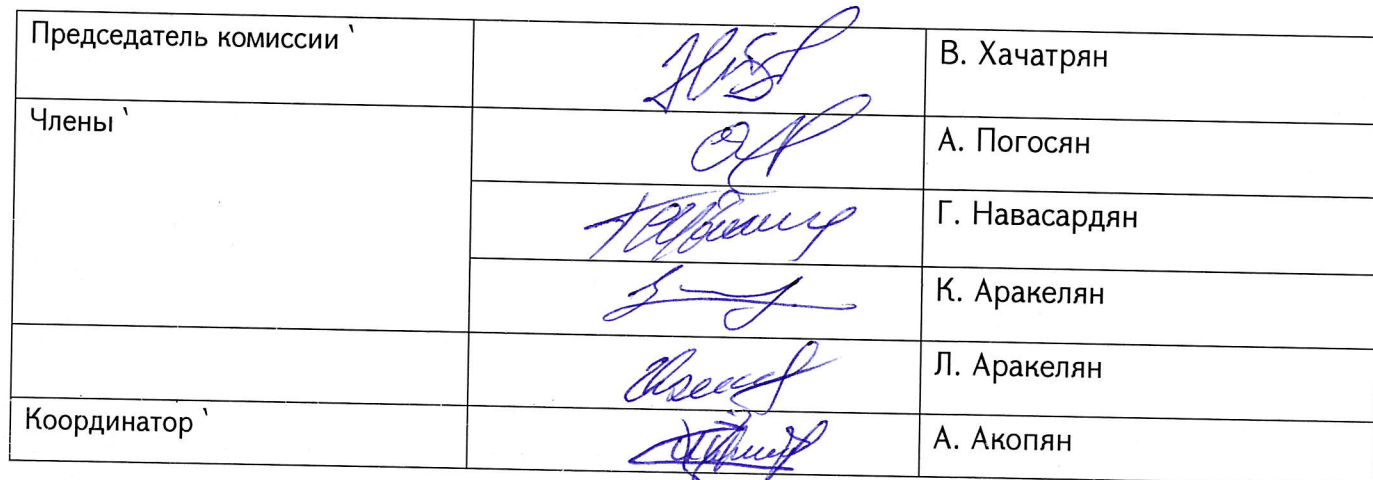 Председатель комиссии ՝ В. Хачатрян
Члены ՝ А. Погосян
Г. Навасардян
К. Аракелян
Л. Аракелян
Координатор ՝ А. Акопян